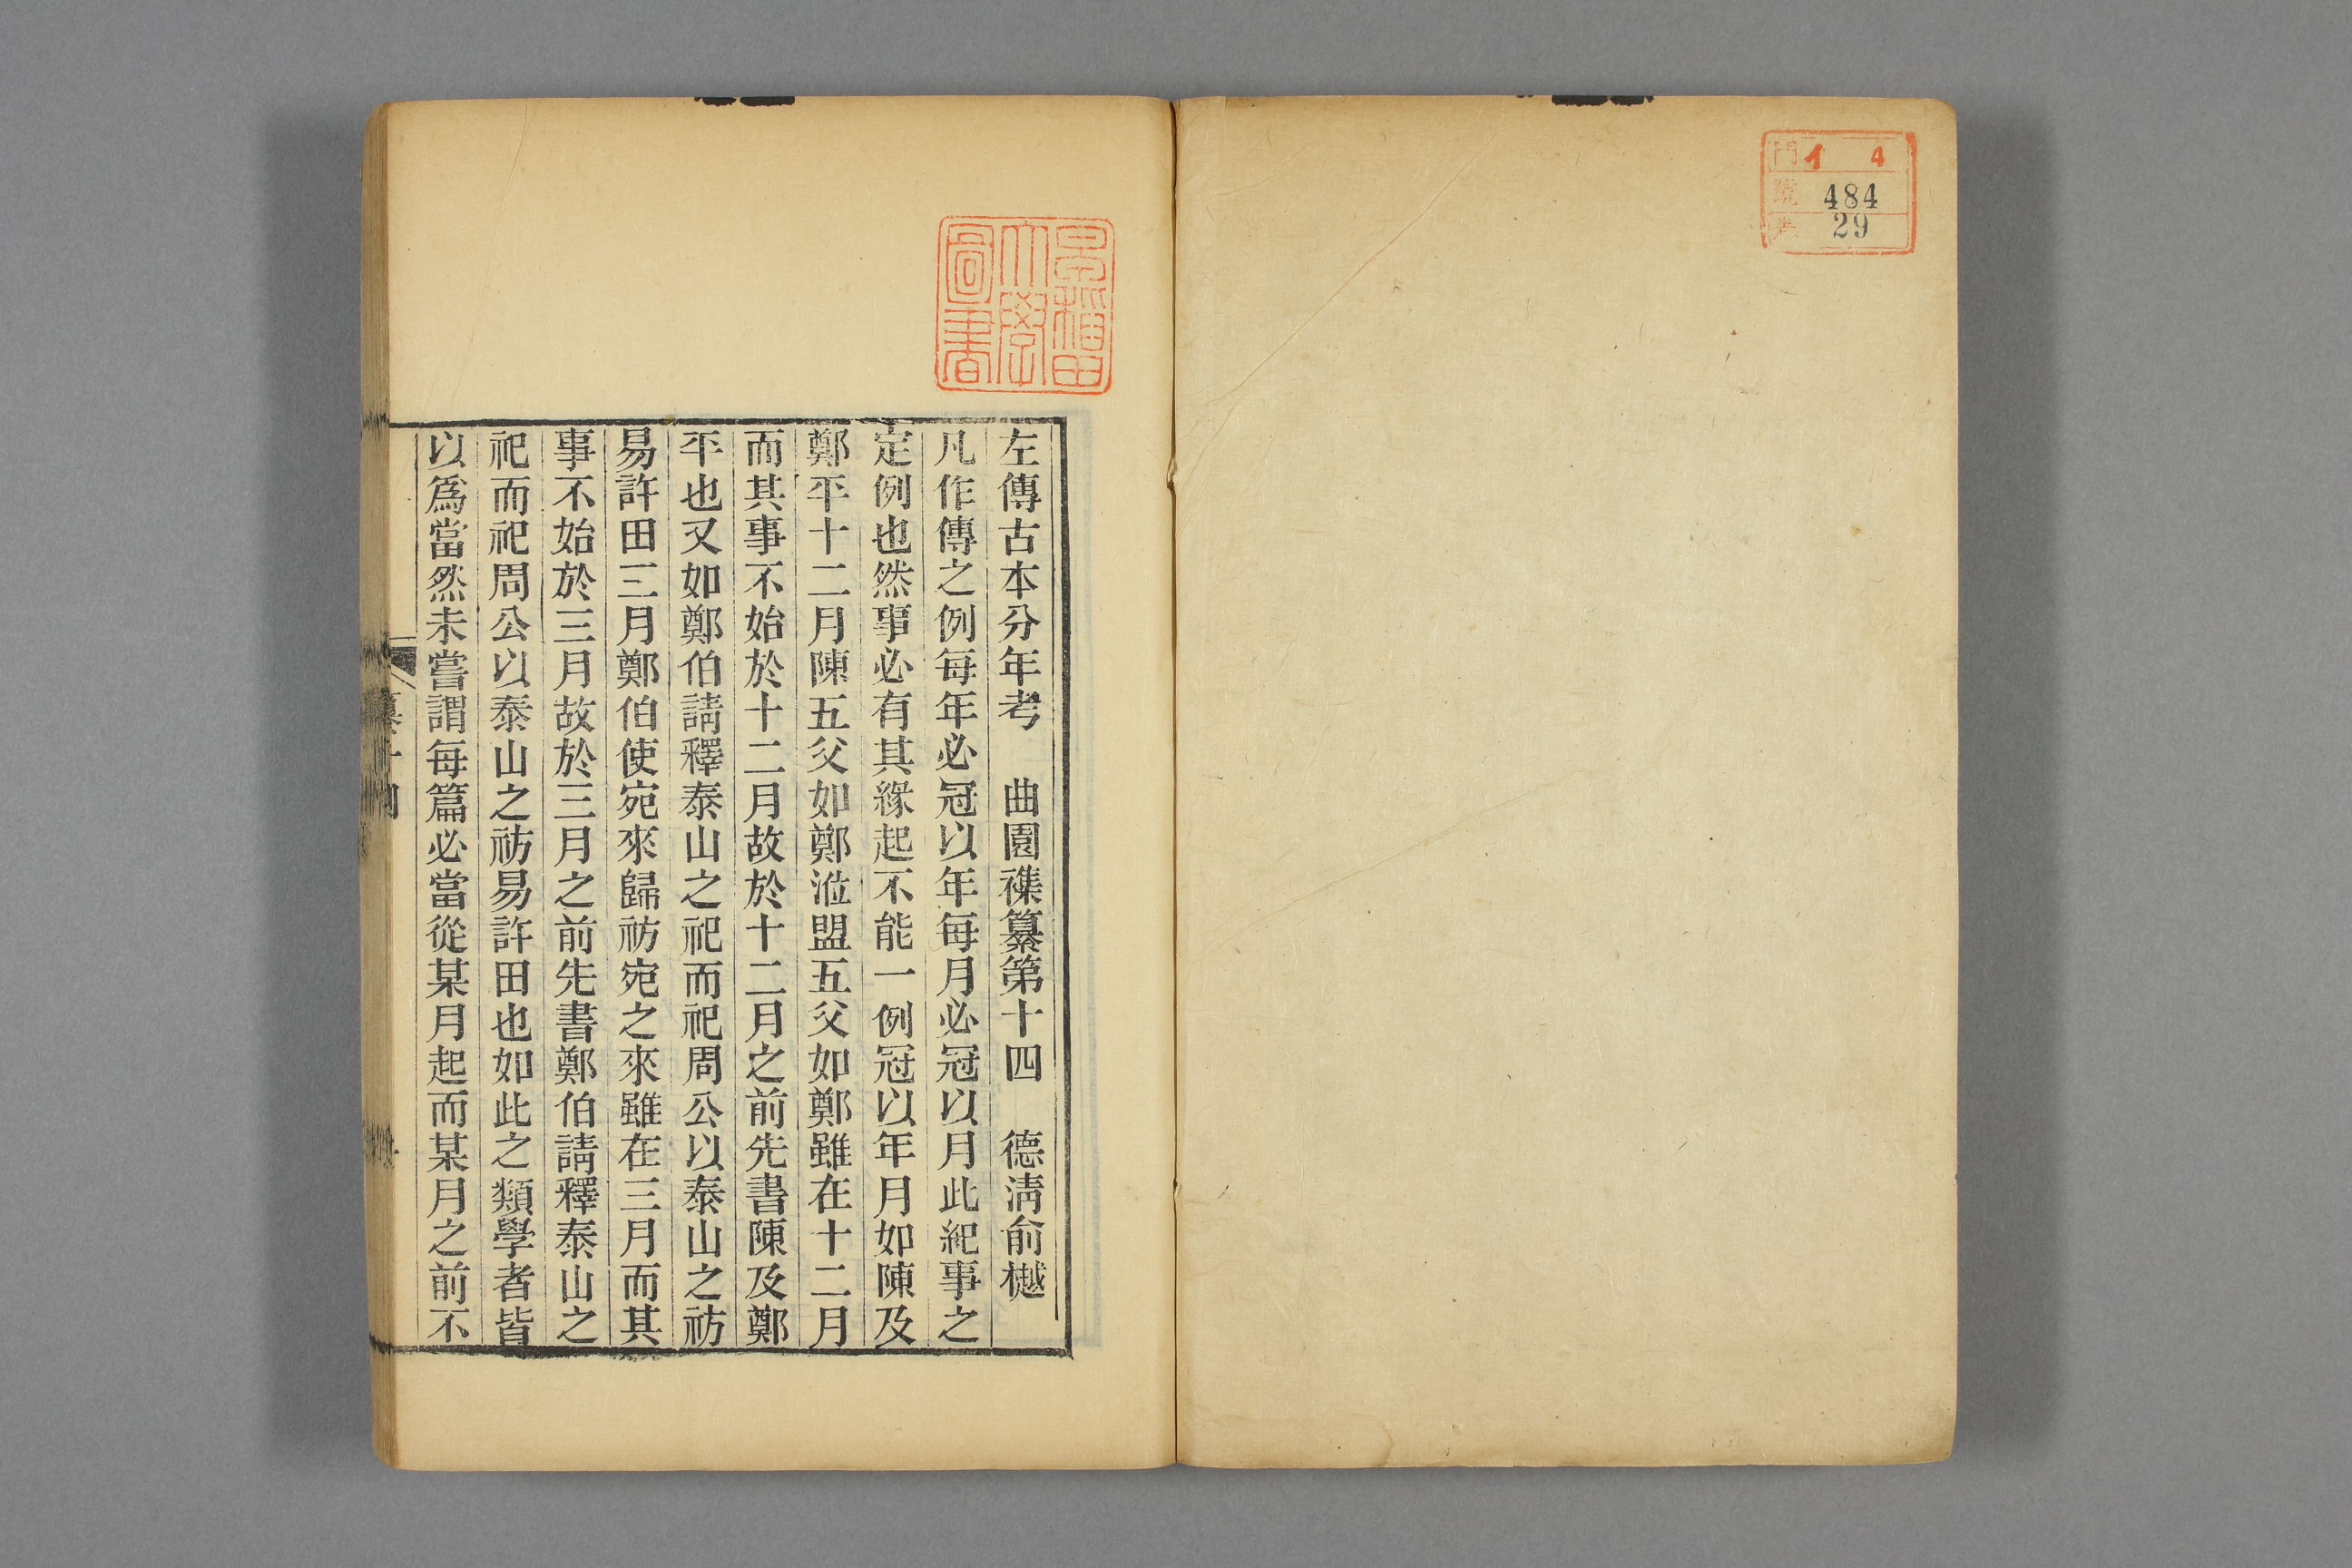 門 イ 4
號 484
29
早稲田
大學
圖書
左傳古本分年考　曲園襍纂第十四　德清俞樾
凡作傳之例每年必冠以年每月必冠以月此紀事之
定例也然事必有其緣起不能一例冠以年月如陳及
鄭平十二月陳五父如鄭涖盟五父如鄭雖在十二月
而其事不始於十二月故於十二月之前先書陳及鄭
平也又如鄭伯請釋泰山之祀而祀周公以泰山之祊
易許田三月鄭伯使宛來歸祊宛之來雖在三月而其
事不始於三月故於三月之前先書鄭伯請釋泰山之
祀而祀周公以泰山之祊易許田也如此之類學者皆
以為當然未嘗謂每篇必當從某月起而某月之前不